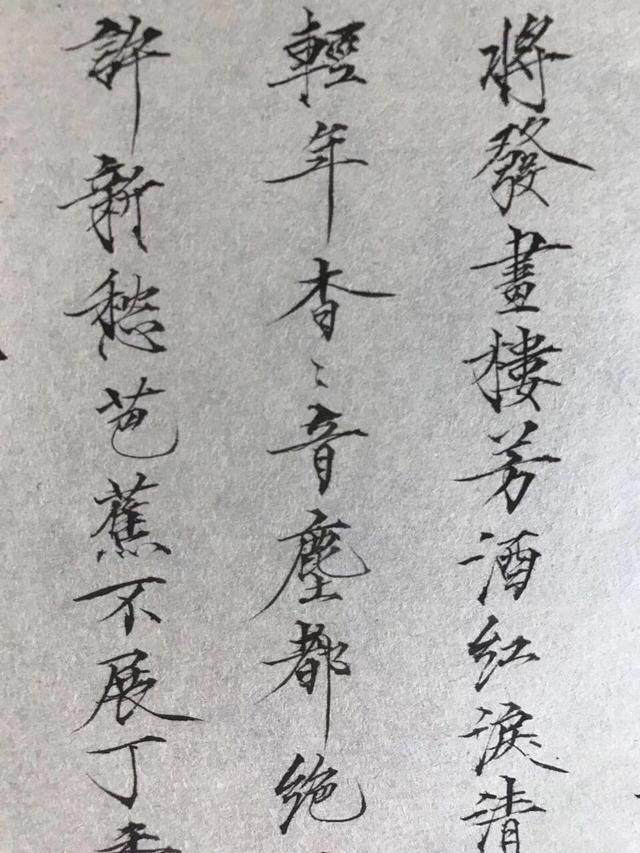 將發畫樓芳酒紅淚清
輕年杳〻音塵都絶
許新愁芭蕉不展丁